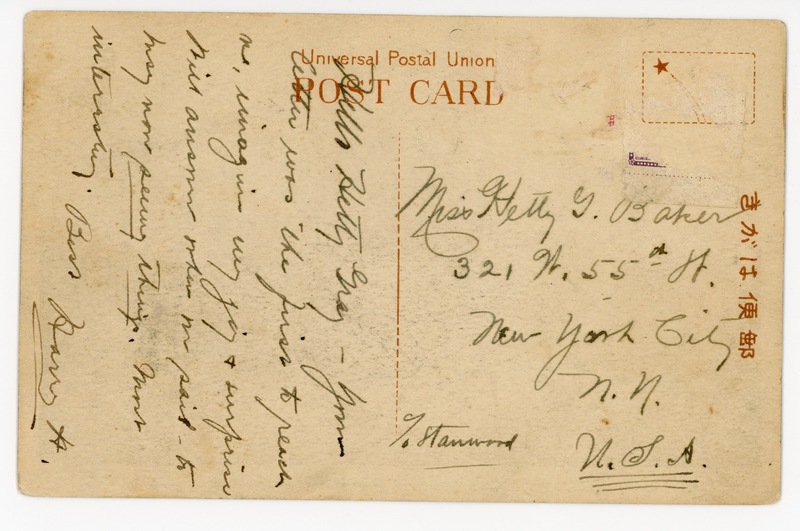 Universal Postal Union
POST CARD
Hello Hetty Gray – Your
letter was the first to reach
me, imagine my joy & surprise
Will answer when - to
now seeing things. Most
interesting. Harry H.
Miss Hetty G. Baker
321 W. 55th St.
New York City
N.Y.
U.S.A.
c/o Stanwood
きがは便郵